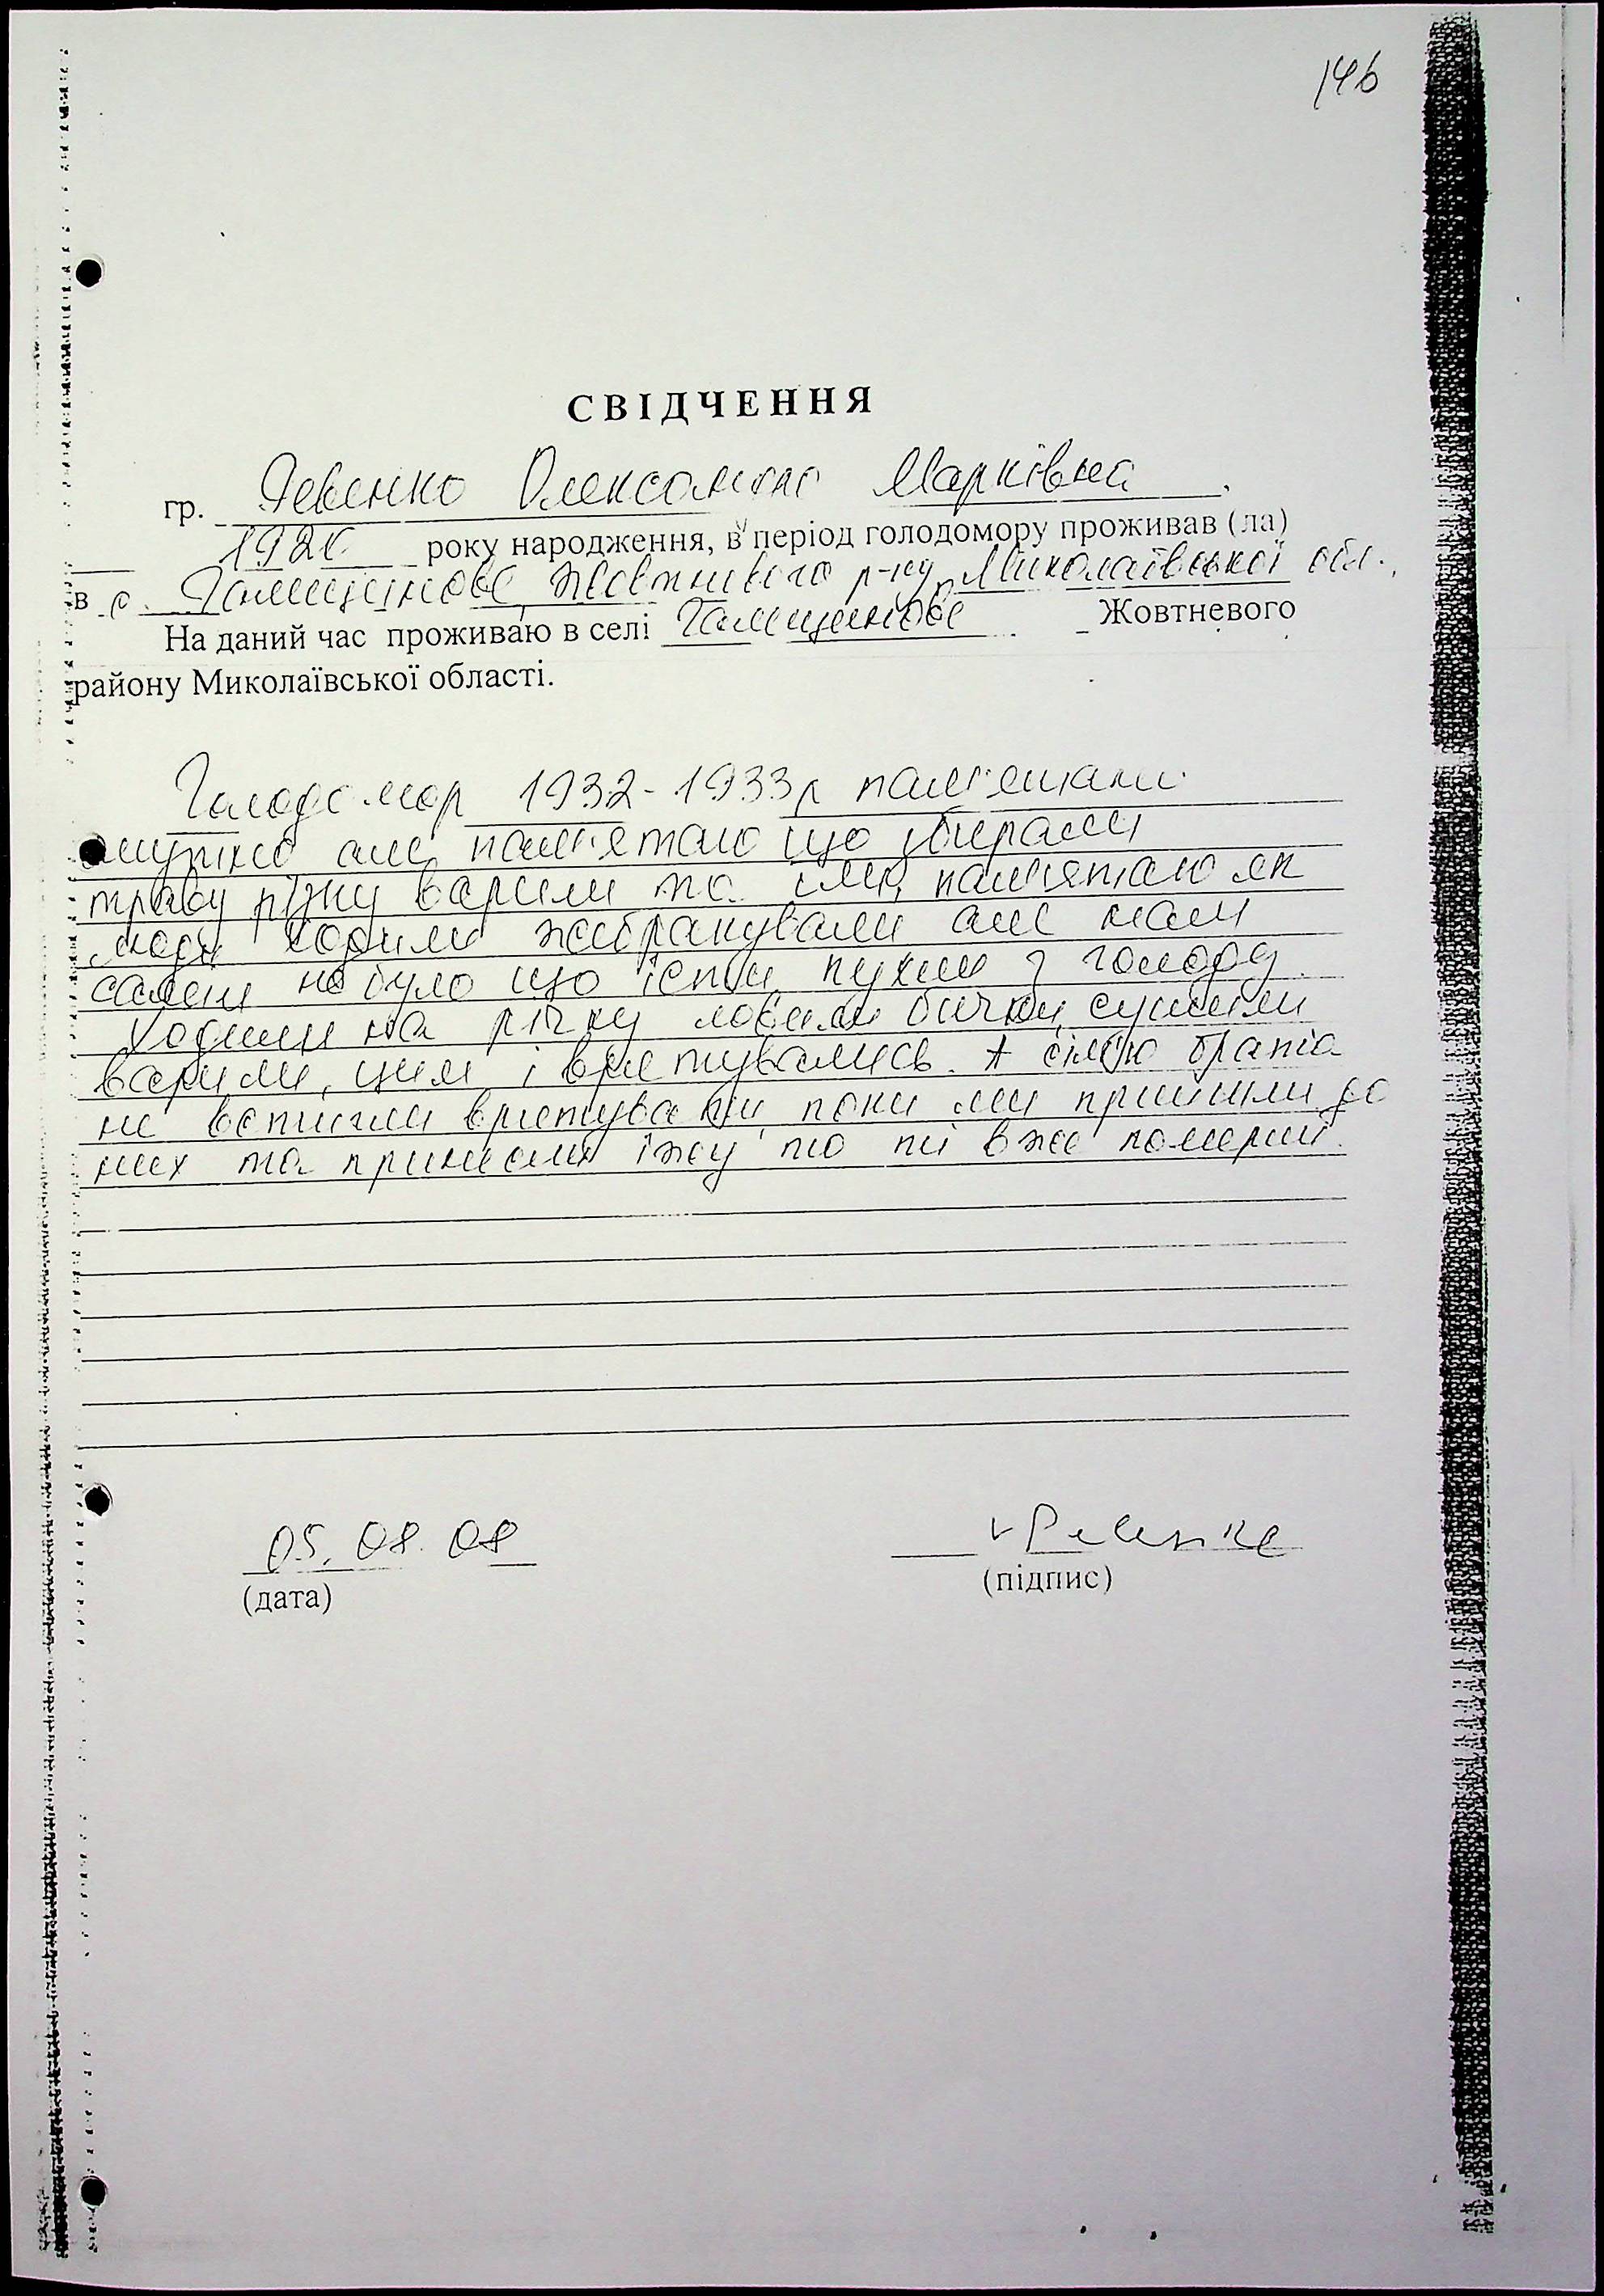 146
СВІДЧЕННЯ
гр. Ревенко Олександра Марківна
1920 року народження, в період голодомору проживав (ла)
в с. Галицинове, Жовтневого р-ну, Миколаївської обл.,
На даний час проживаю в селі Галицинове Жовтневого
району Миколаївської області.
Голодомор 1932-1933р пам'ятаю
смутно але пам'ятаю що збирали
траву різну варили та їли, пам'ятаю як
люди ходили жебракували але нам
самим не було що їсти пухли з голоду.
Ходили на річку ловили бички, сушили
варили, цим і врятувались. А сім'ю брата
не встигли врятувати, поки ми прийшли до
них та принесли їжу то ті вже померли.
05. 08. 08
(дата)
(підпис)